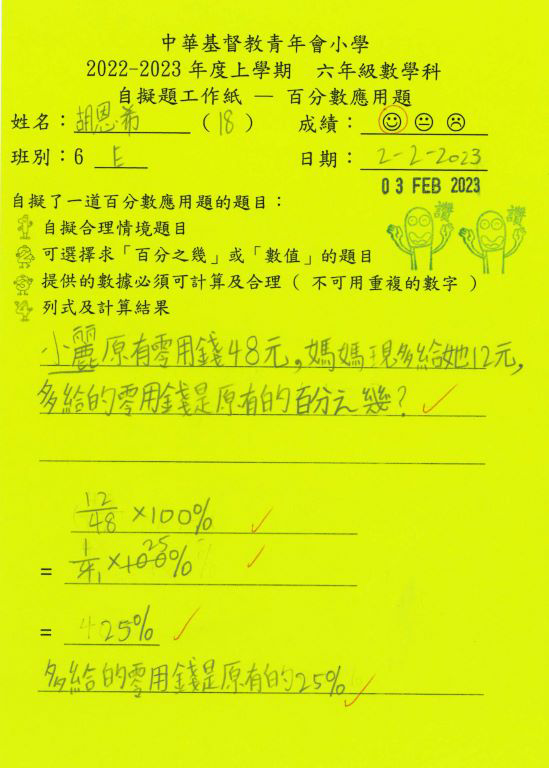 中華基督教青年會小學
2022-2023 年度上學期 六年級數學科
自擬題工作紙 — 百分數應用題
姓名：胡恩希 （ 18 ） 成績：
班別：6 E 日期：2-2-2023
03 FEB 2023
自擬了一道百分數應用題的題目：
讚 讚
自擬合理情境題目
可選擇求「百分之幾」或「數值」的題目
提供的數據必須可計算及合理（ 不可用重複的數字 ）
列式及計算結果
小麗原有零用錢48元，媽媽現多給她12元，
多給的零用錢是原有的百分之幾？
12/48 ×100%
= 1/4 1 ×100 25 %
= 25%
多給的零用錢是原有的25%